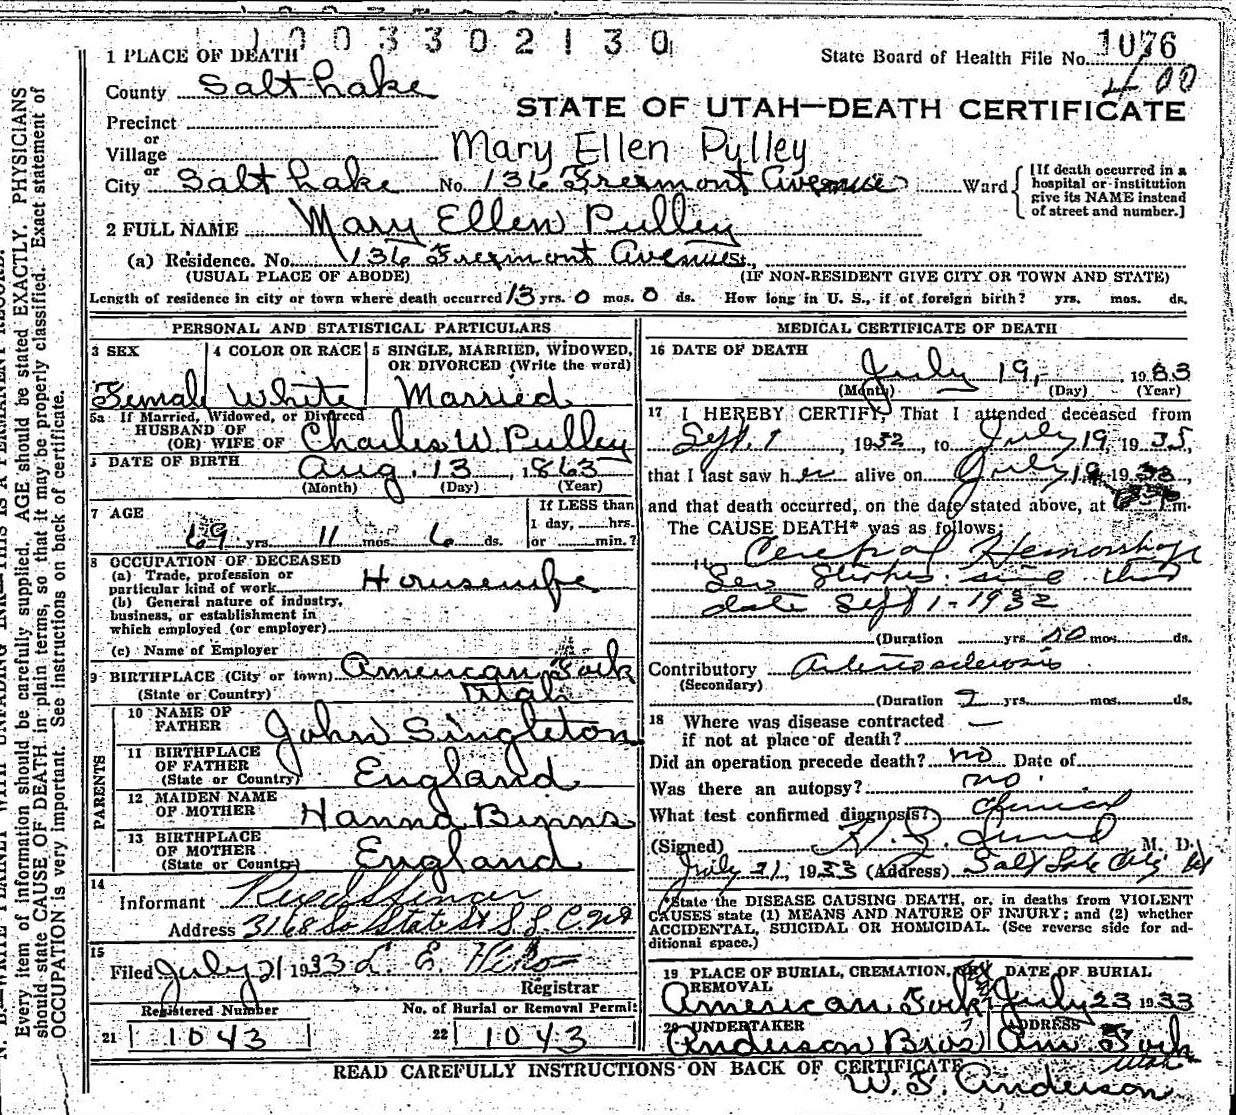 1003302130
State Board of Health File No. 1076
400
1 PLACE OF DEATH
County Salt Lake
STATE OF UTAH—DEATH CERTIFICATE
Precinct
or
Village
Mary Ellen Pulley
or
City Salt Lake No. 136 Fremont Avenue Ward
[If death occurred in a hospital or institution give its NAME instead of street and number.]
2 FULL NAME Mary Ellen Pulley
(a) Residence. No. 136 Fremont Avenue,
(USUAL PLACE OF ABODE) (IF NON-RESIDENT GIVE CITY OR TOWN AND STATE)
Length of residence in city or town where death occurred 13 yrs. 0 mos. 0 ds. How long in U. S., if of foreign birth? yrs. mos. ds.
PERSONAL AND STATISTICAL PARTICULARS
3 SEX 4 COLOR OR RACE 5 SINGLE, MARRIED, WIDOWED,
OR DIVORCED (Write the word)
Female White Married
5a If Married, Widowed, or Divorced
HUSBAND OF
(OR) WIFE OF Charles W. Pulley
DATE OF BIRTH Aug. 13, 1863
(Month) (Day) (Year)
7 AGE If LESS than
1 day, hrs.
69 yrs. 11 mos. 6 ds. or min.?
8 OCCUPATION OF DECEASED
(a) Trade, profession or
particular kind of work Housewife
(b) General nature of industry,
business, or establishment in
which employed (or employer)
(c) Name of Employer
9 BIRTHPLACE (City or town) American Fork
(State or Country) Utah
PARENTS
10 NAME OF
FATHER John Singleton
11 BIRTHPLACE
OF FATHER
(State or Country) England
12 MAIDEN NAME
OF MOTHER Hanna Binns
13 BIRTHPLACE
OF MOTHER
(State or Country) England
14
Informant
Address 3168 So State St S.L.C.
15
Filed July 21 1933 L. E.
Registrar
Registered Number No. of Burial or Removal Permit
21 1043 22 1043
MEDICAL CERTIFICATE OF DEATH
16 DATE OF DEATH
July 19, 1933
(Month) (Day) (Year)
17 I HEREBY CERTIFY, That I attended deceased from
Sept. 1, 1932, to July 19, 1933,
that I last saw her alive on July 19 1933,
and that death occurred, on the date stated above, at m.
The CAUSE DEATH* was as follows:
Cerebral Hemorrhage
strokes since that
date Sept 1-1932
(Duration yrs. 10 mos. ds.
Contributory Arteriosclerosis
(Secondary)
(Duration yrs. mos. ds.
18 Where was disease contracted —
if not at place of death?
Did an operation precede death? no Date of
Was there an autopsy? no
What test confirmed diagnosis? Clinical
(Signed) Lund M. D.
July 21, 1933 (Address) Salt Lake City Ut
*State the DISEASE CAUSING DEATH, or, in deaths from VIOLENT
CAUSES state (1) MEANS AND NATURE OF INJURY; and (2) whether
ACCIDENTAL, SUICIDAL OR HOMICIDAL. (See reverse side for ad-
ditional space.)
19 PLACE OF BURIAL, CREMATION, DATE OF BURIAL
REMOVAL
American Fork July 23 1933
20 UNDERTAKER ADDRESS
Anderson Bros Am. Fork
Utah
READ CAREFULLY INSTRUCTIONS ON BACK OF CERTIFICATE
W. S. Anderson
Every item of information should be carefully supplied. AGE should be stated EXACTLY. PHYSICIANS
should state CAUSE OF DEATH in plain terms, so that it may be properly classified. Exact statement of
OCCUPATION is very important. See instructions on back of certificate.